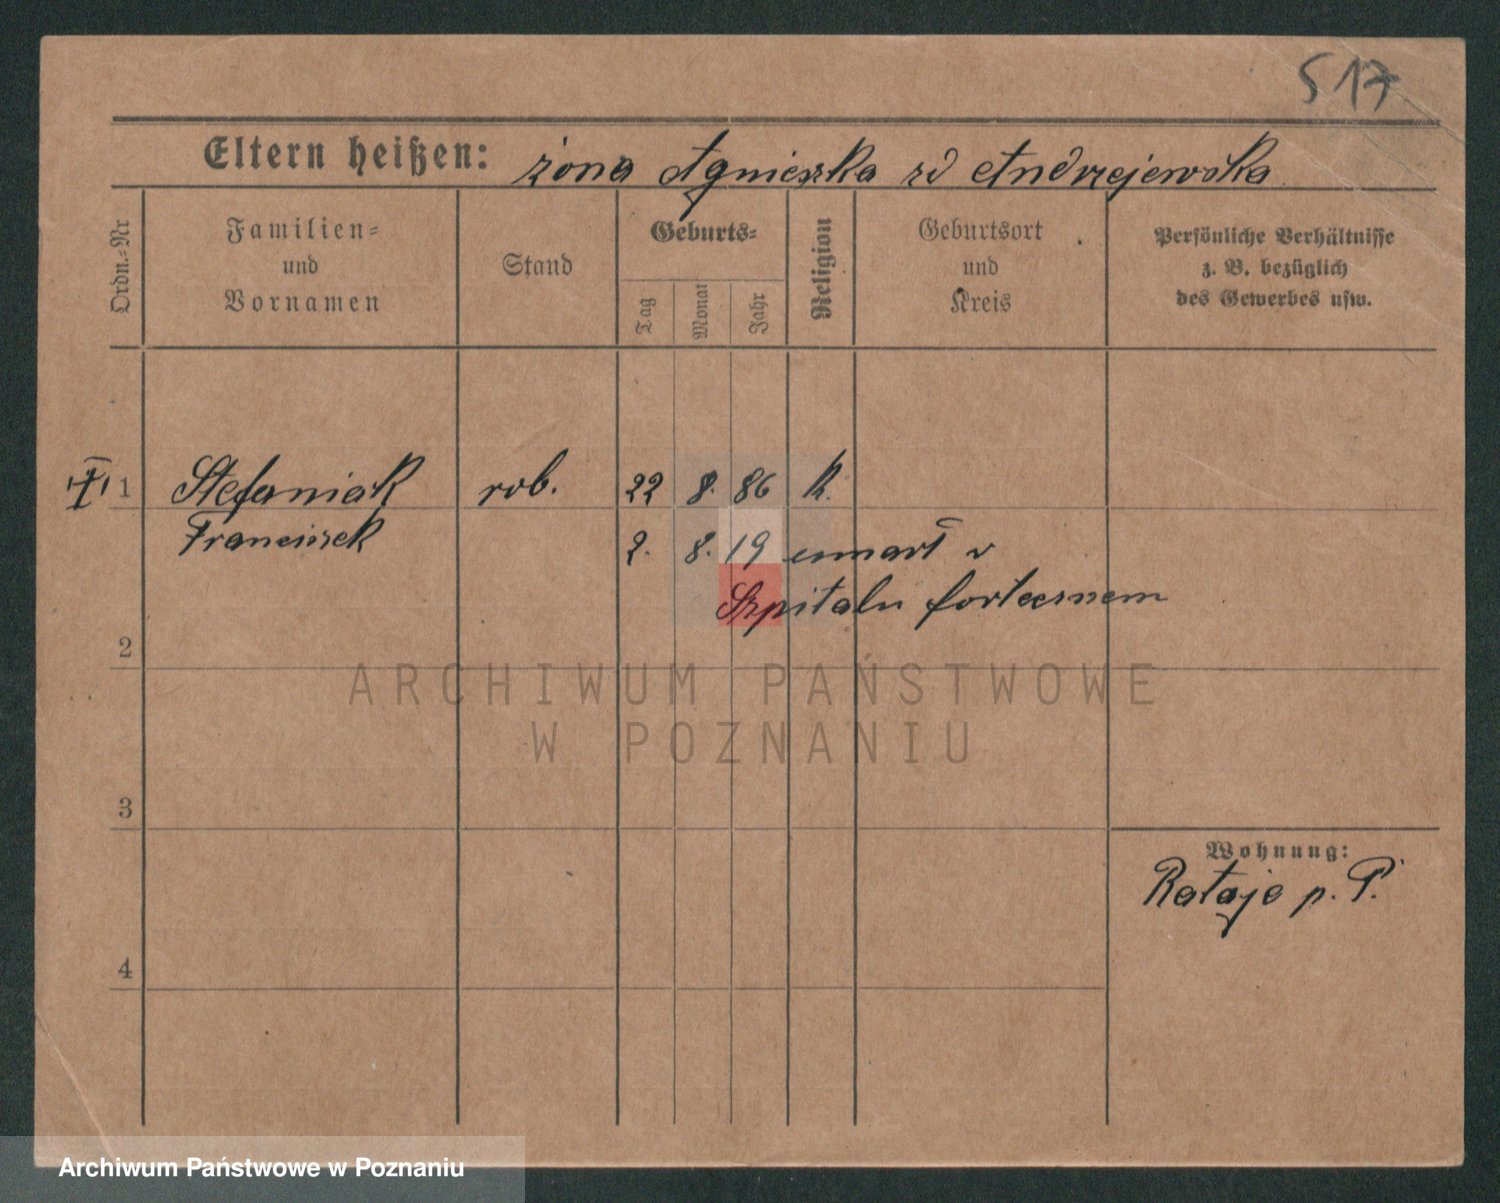 517
Eltern heißen: żona Agnieszka zd Andrzejewska
Ordn.-Nr
Familien-
und
Vornamen
Stand
Geburts-
Tag
Monat
Jahr
Religion
Geburtsort
und
Kreis
Persönliche Verhältnisse
z. B. bezüglich
des Gewerbes usw.
1 Stefaniak rob. 22 8. 86 k.
Franciszek
2. 8. 19 umarł w
Szpitalu fortecznem
2
ARCHIWUM PAŃSTWOWE
W POZNANIU
3
Wohnung:
Rataje p. P.
4
Archiwum Państwowe w Poznaniu